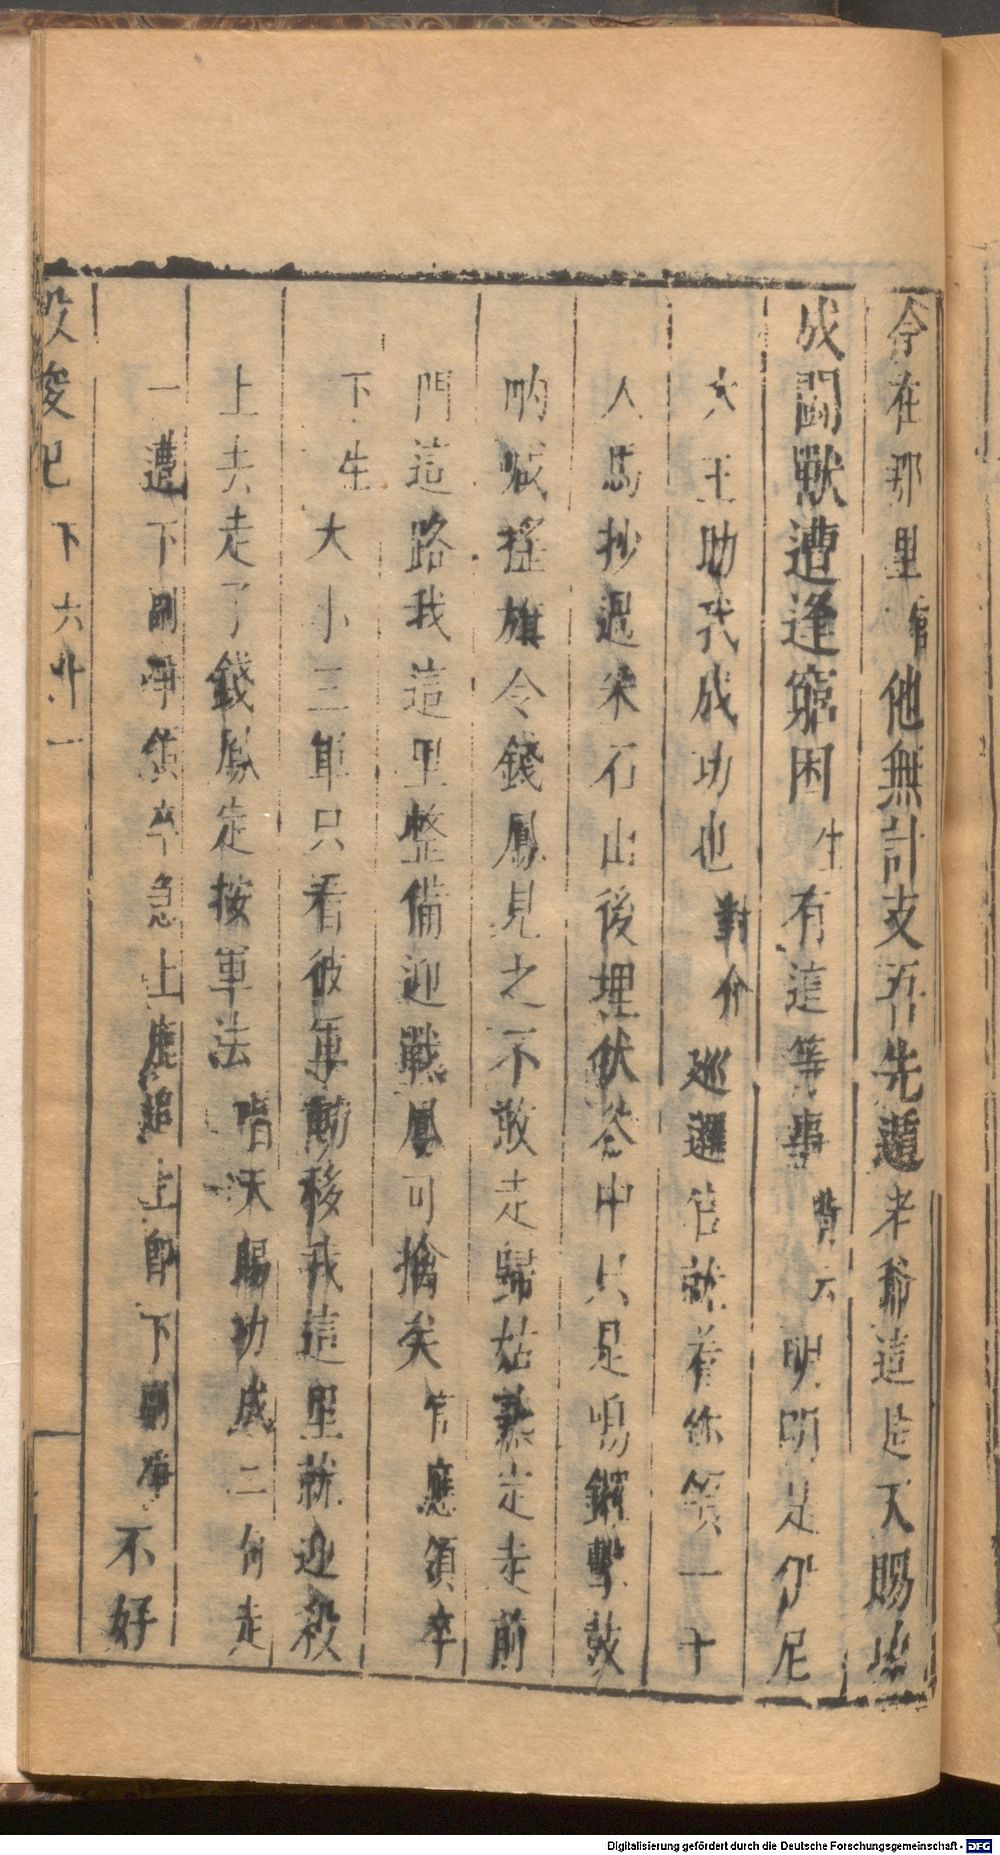 今在那里 他無計支吾先遁老爺這是天賜
成鬪獸遭逢窮困生有這等事背云明明是仲尼
大王助我成功也對介巡邏官就着你領一十
人馬抄過采石山後埋伏谷中只是鳴鑼擊鼓
吶喊搖旗令錢鳳見之不敢走歸姑熟定走前
門這路我這里整備迎戰鳳可擒矣官應領卒
下生大小三軍只看彼軍動移我這里就迎殺
上去走了錢鳳定按軍法唱天賜功成二句走
一遭下 領卒急上 追上 下 不好
投梭記 下 六 卅一
Digitalisierung gefördert durch die Deutsche Forschungsgemeinschaft - DFG